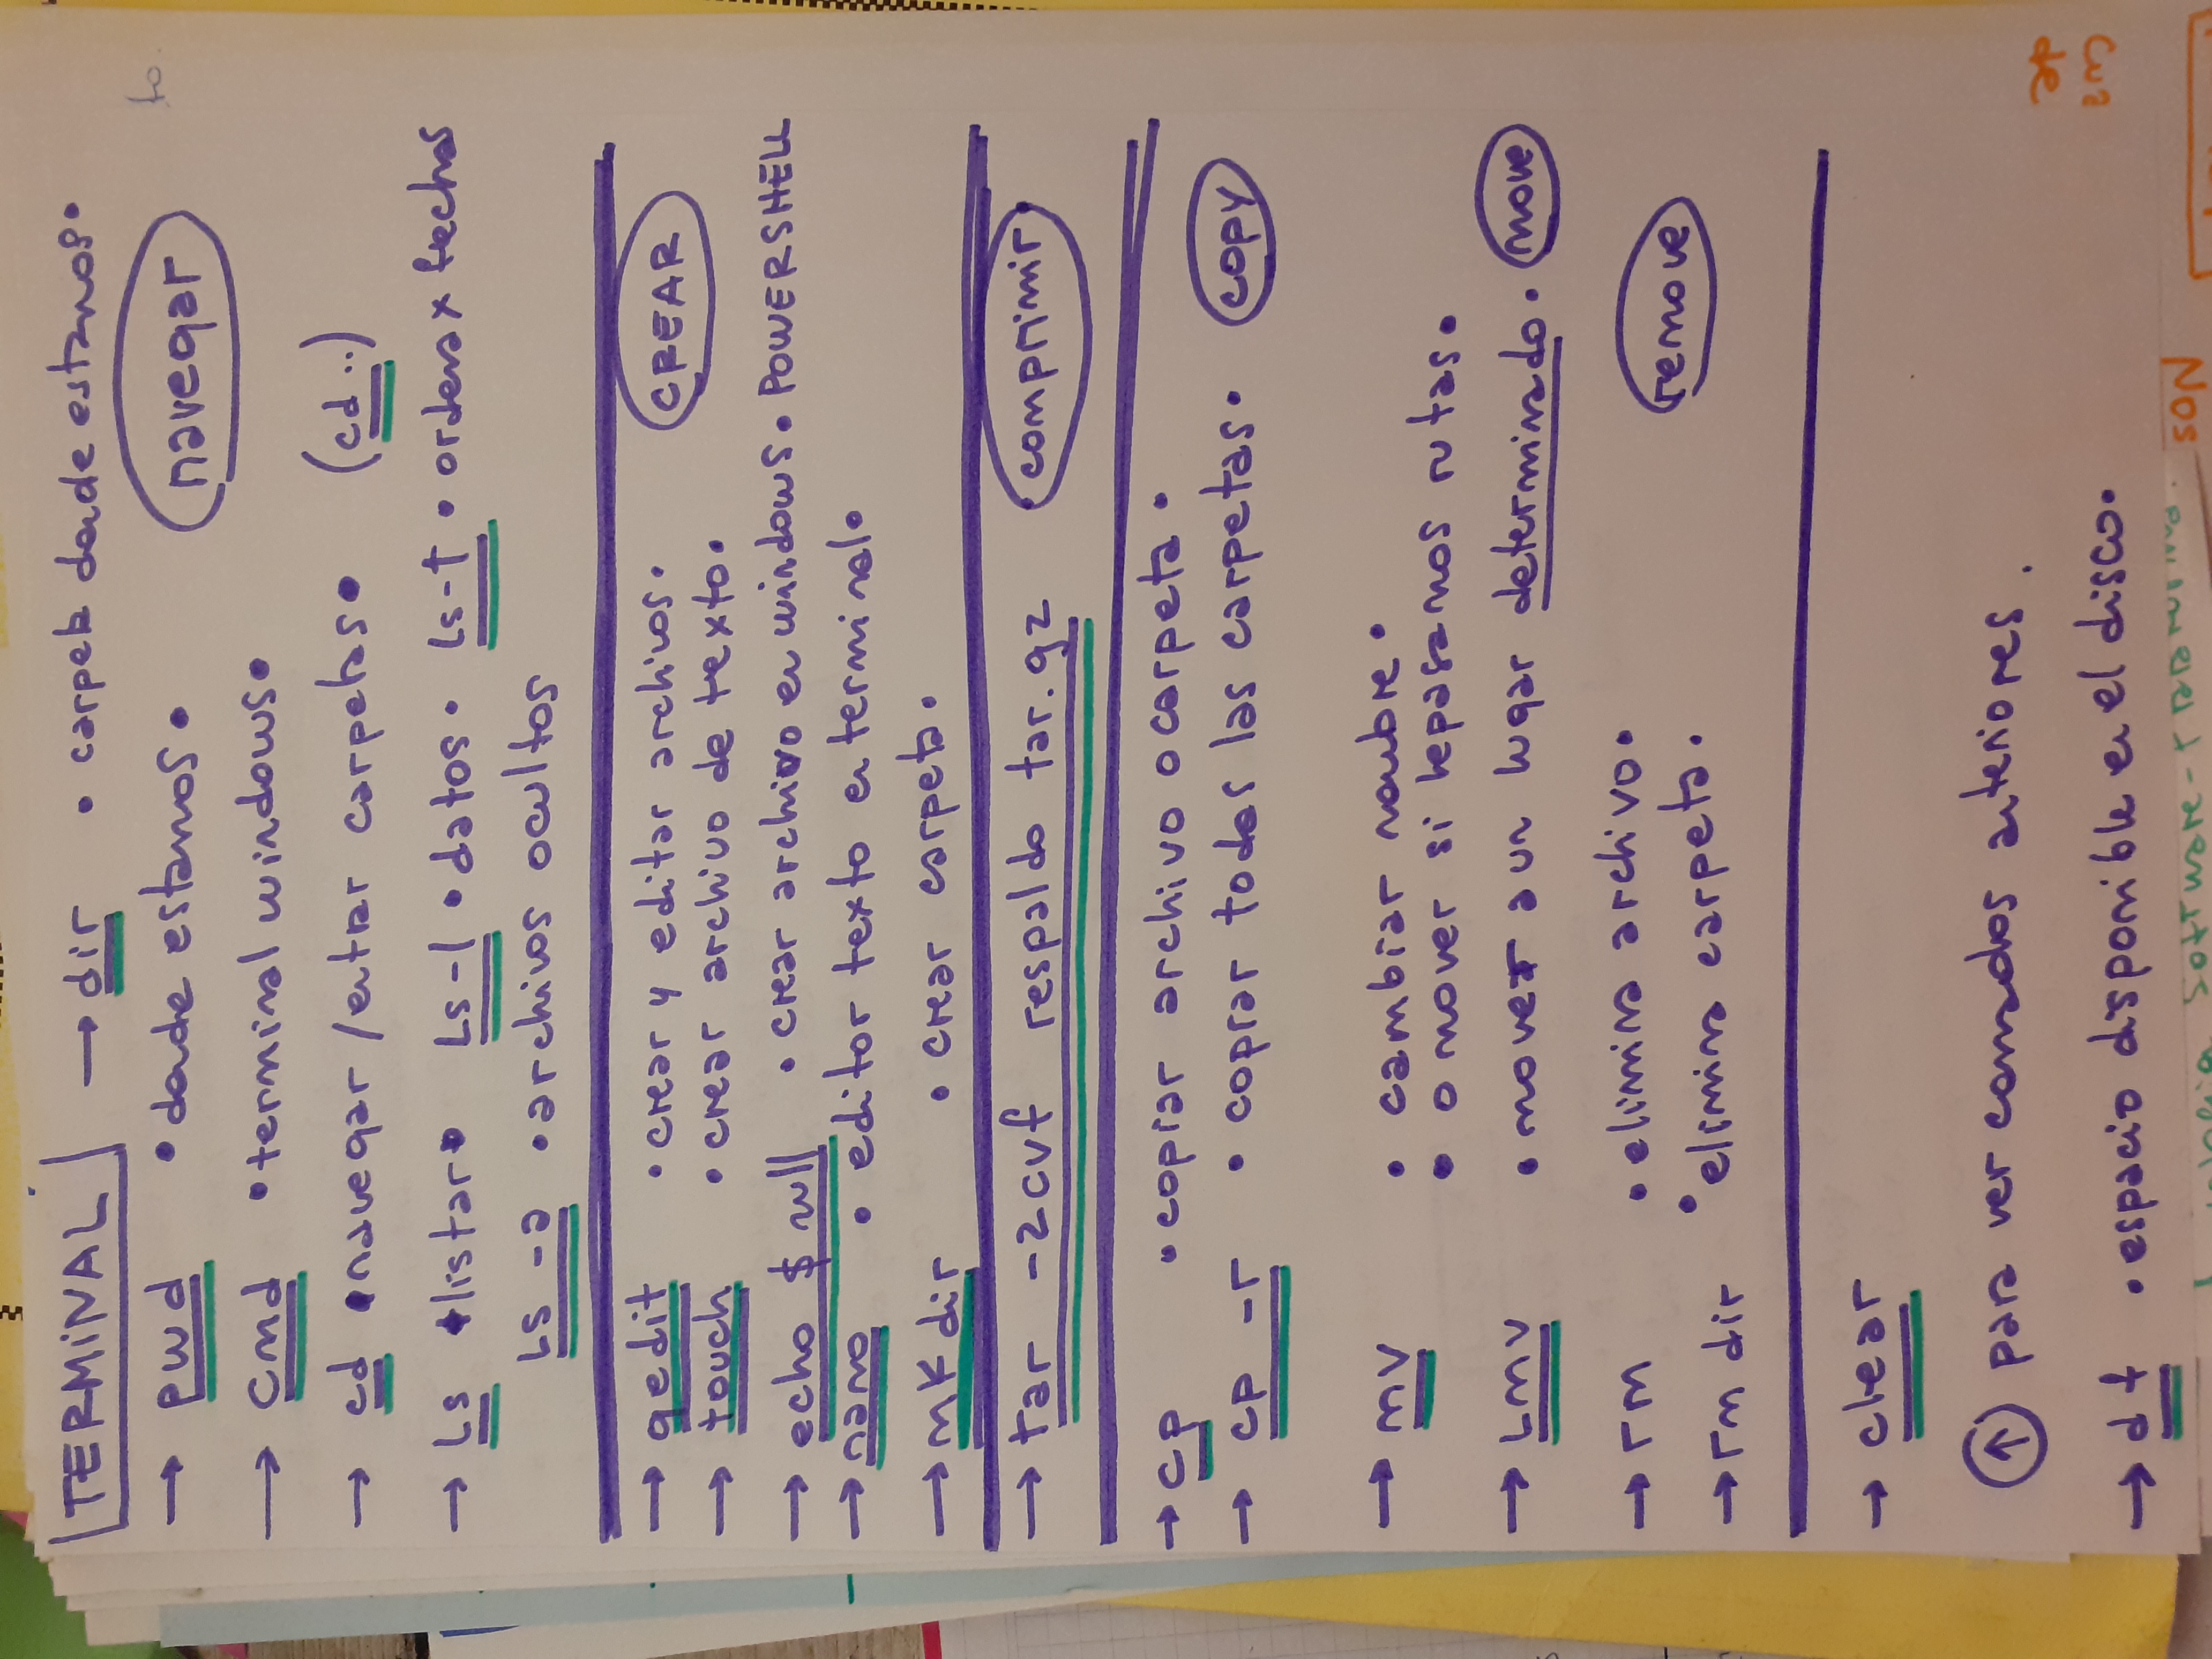 TERMINAL → dir • carpeta donde estamos•
→ pwd • donde estamos • navegar
→ cmd • terminal windows•
→ cd • navegar / entrar carpetas • (cd ..)
→ Ls • listar • Ls -l • datos • Ls -t • ordena x fechas
Ls -a • archivos ocultos
→ gedit • crear y editar archivos • CREAR
→ touch • crear archivo de texto •
→ echo $ null • crear archivo en windows • POWERSHELL
→ nano • editor texto en terminal•
→ mkdir • crear carpeta •
→ tar -zcvf respaldo tar.gz comprimir
→ cp • copiar archivo o carpeta •
→ cp -r • copiar todas las carpetas • copy
→ mv • cambiar nombre •
• o mover si le pasamos rutas •
→ Lmv • mover a un lugar determinado • move
→ rm • elimina archivo •
→ rm dir • elimina carpeta • remove
→ clear
↑ para ver comandos anteriores.
→ df • espacio disponible en el disco •
to.
de
SON